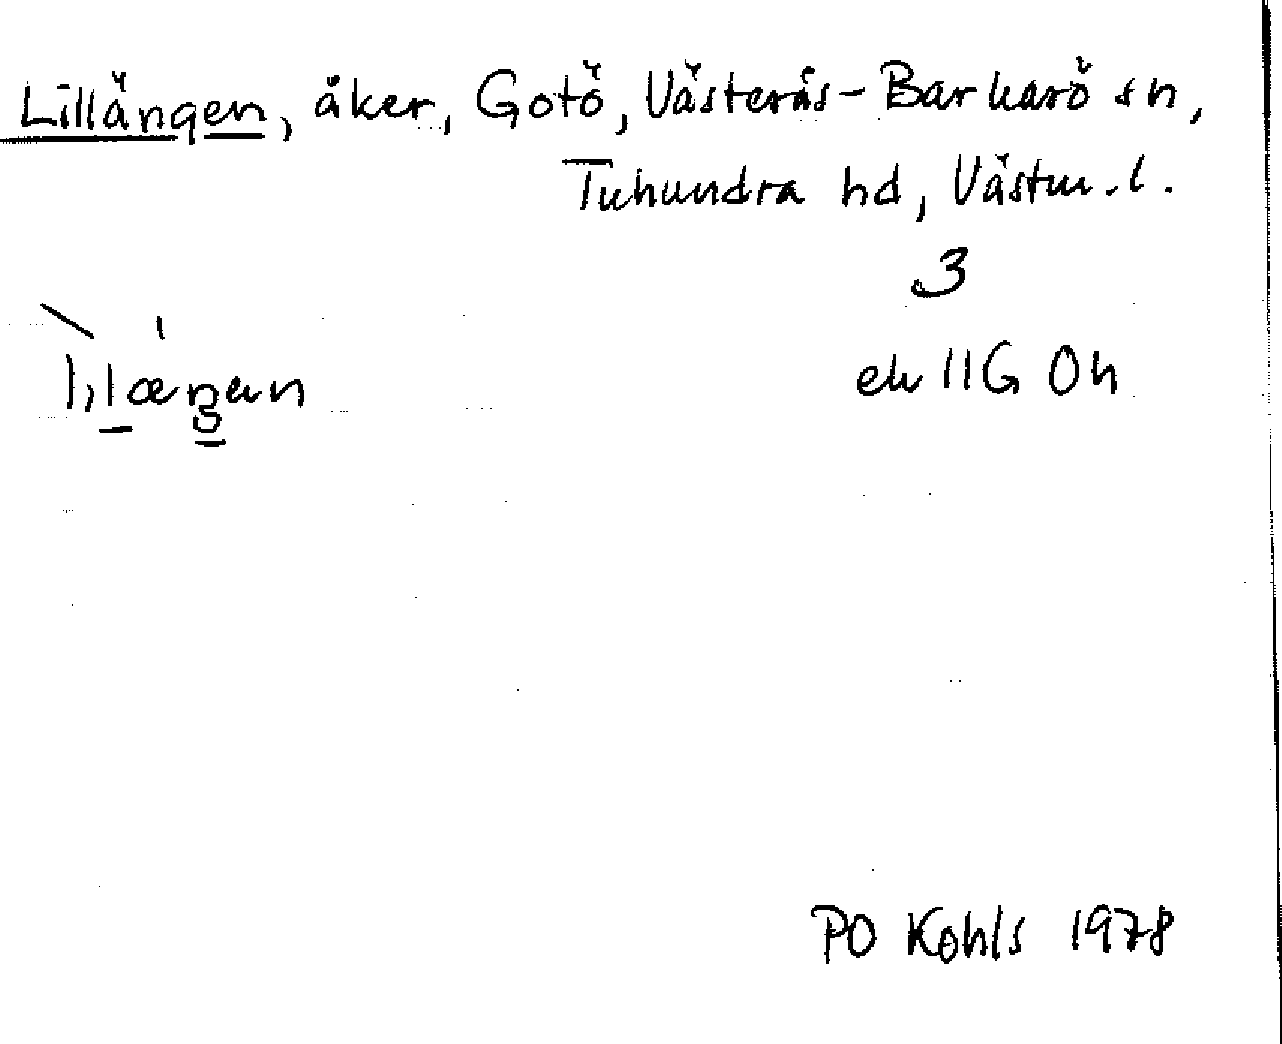 Lillängen, åker, Gotö, Västerås-Barkarö sn,
Tuhundra hd, Västm. l.
3
ek 11G 0h
PO Kohls 1978